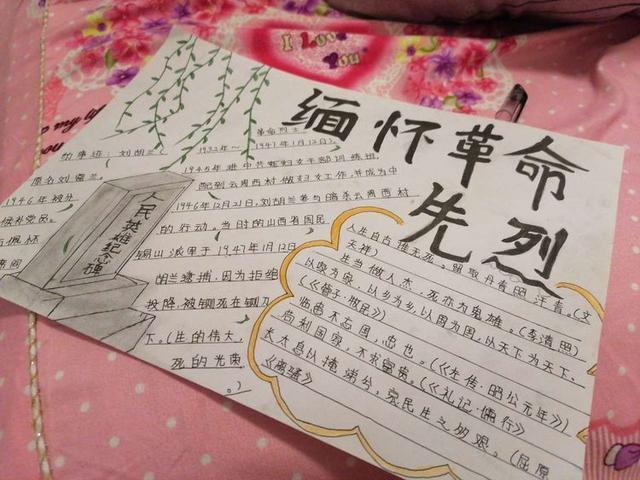 I Love
You
缅怀革命
先烈
人民英雄纪念碑
革命烈士
刘胡兰(1932年~1947年1月12日),
原名刘富兰。
1945年进中共妇女干部训练班,
1946年被分配到云周西村做妇女工作,并成为中
候补党员。
1946年12月21日,刘胡兰参与暗杀云周西村
的行动。当时的山西省国民
派军于1947年1月12日
胡兰逮捕,因为拒绝
投降,被铡死在铡刀
下。(生的伟大,
死的光荣
。)
人生自古谁无死。留取丹青照汗青。(文
天祥)
生当做人杰,死亦为鬼雄。(李清照)
以家为家,以乡为乡,以国为国,以天下为天下。
(《管子·牧民》)
临患不忘国,忠也。(《左传·昭公元年》)
苟利国家,不求富贵。(《礼记·儒行》)
长太息以掩涕兮,哀民生之多艰。(屈原
《离骚》)